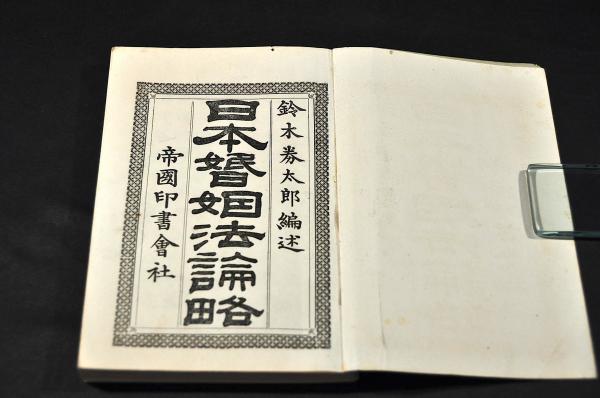 鈴木券太郎編述
日本婚姻法論略
帝國印書會社